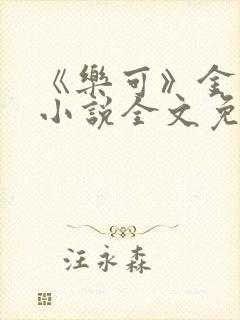 《樂可》金
小說全文免
汪永森